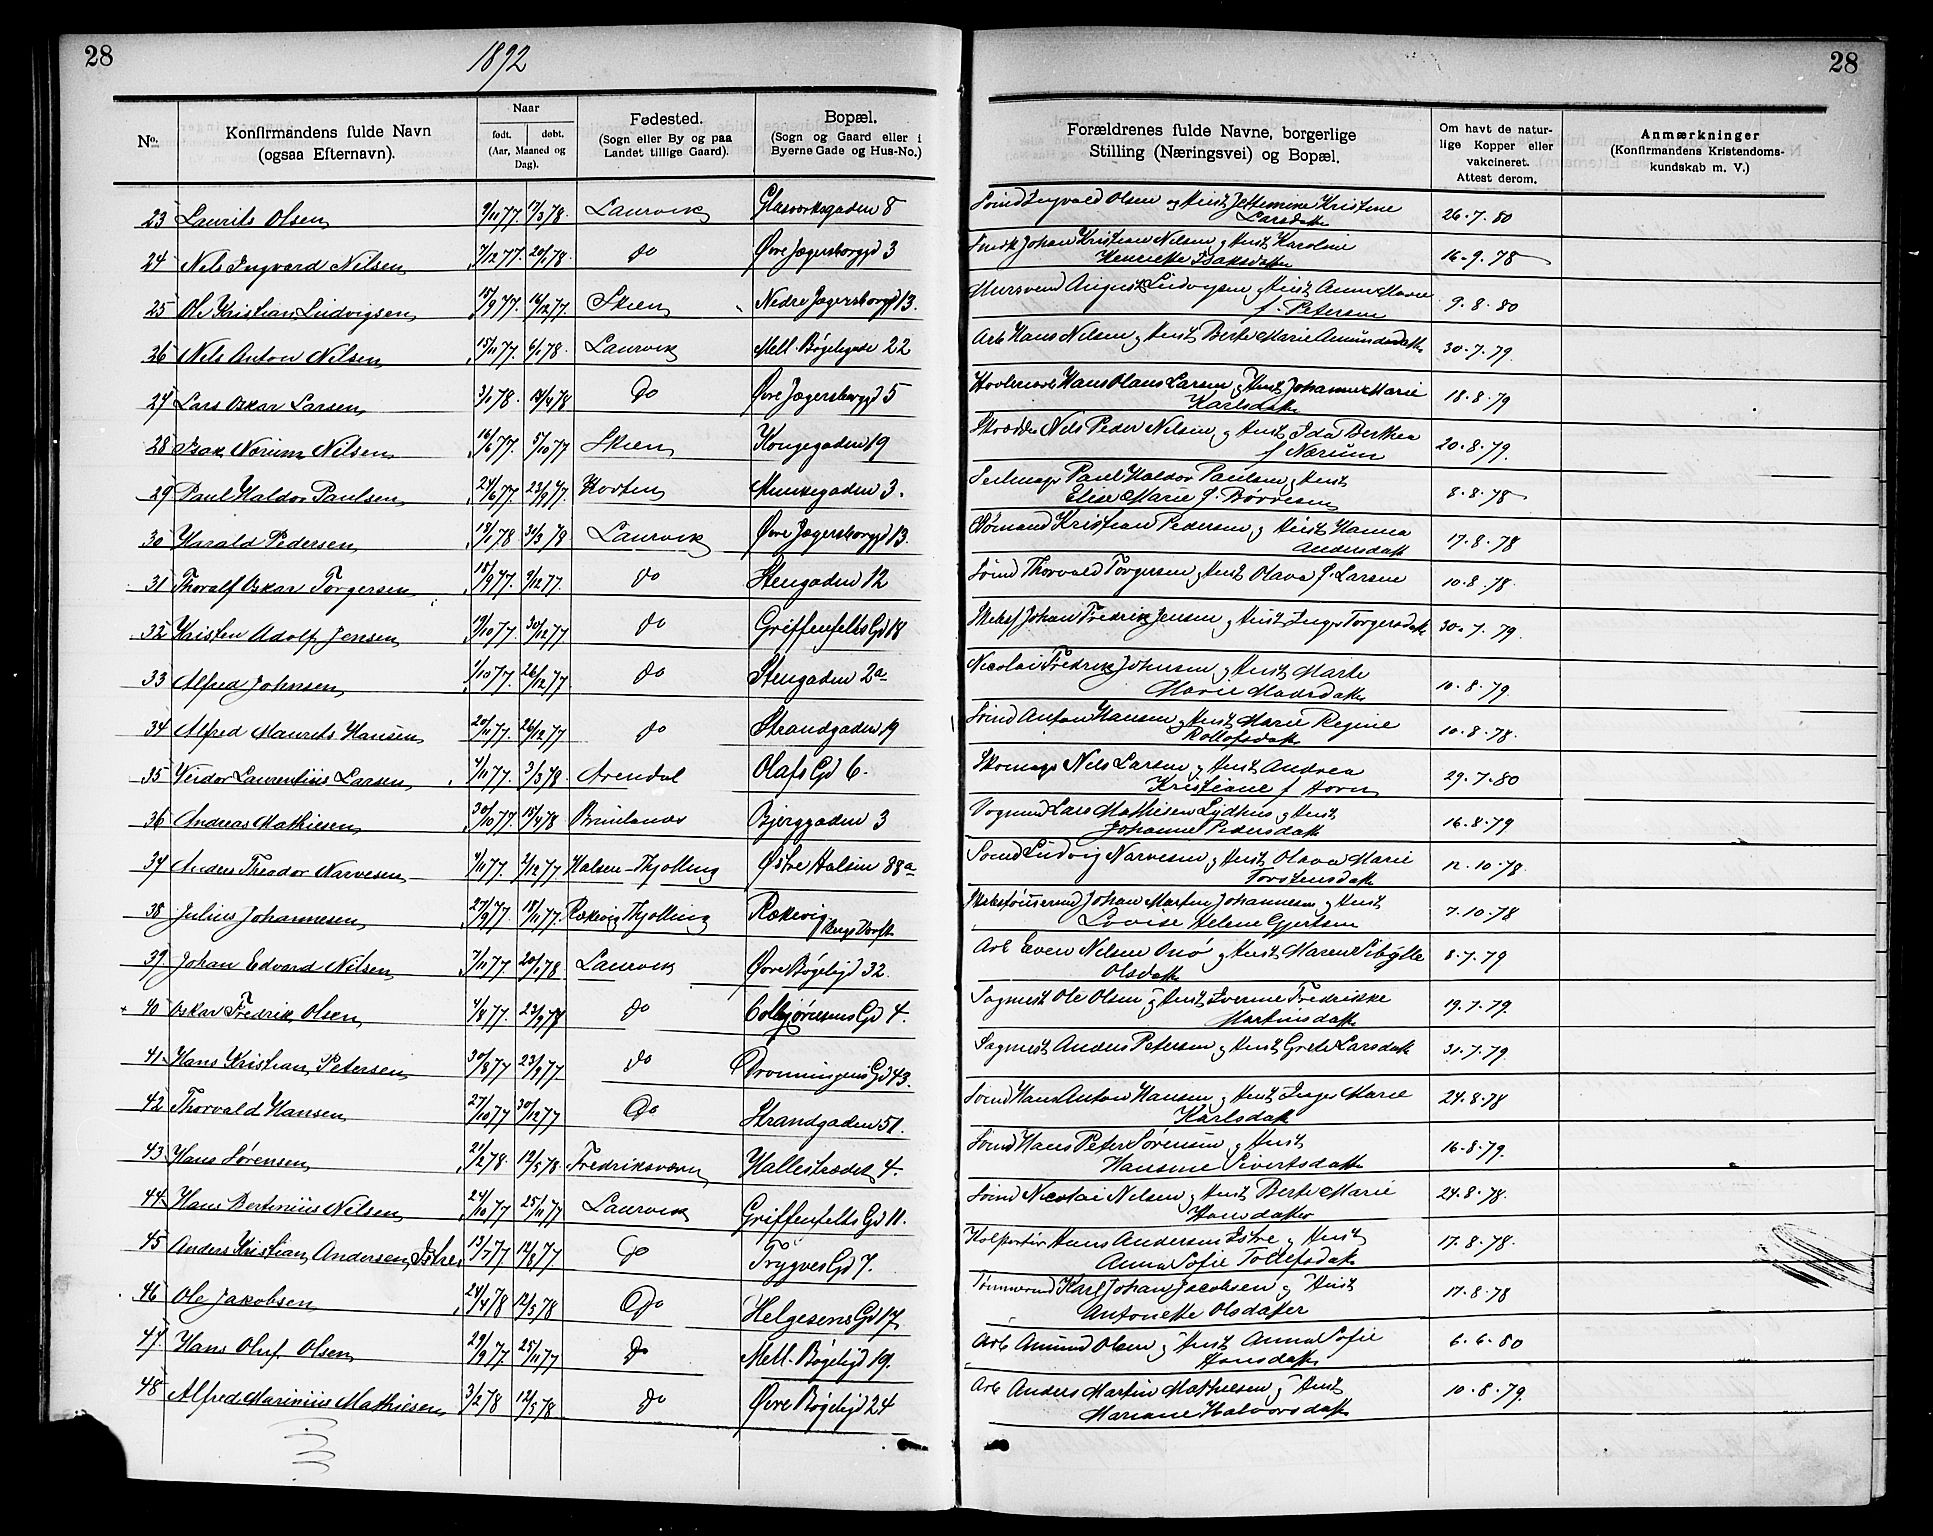 28
1892
28
No.
Konfirmandens fulde Navn
(ogsaa Efternavn).
Naar
født. døbt.
(Aar, Maaned og
Dag).
Fødested.
(Sogn eller By og paa
Landet tillige Gaard).
Bopæl.
(Sogn og Gaard eller i
Byerne Gade og Hus-No.)
Forældrenes fulde Navne, borgerlige
Stilling (Næringsvei) og Bopæl.
Om havt de natur-
lige Kopper eller
vakcineret.
Attest derom.
Anmærkninger
(Konfirmandens Kristendoms-
kundskab m. V.)
23 Laurits Olsen 9/11 77 17/3 78. Laurvik Glasverksgaden 8 Sømd Ingvald Olsen og Hust Jettemine Kristine
Larsdatt 26.7.80
24 Nels Ingvard Nilsen 7/12 77. 20/1 78. do Øvre Jægersborggd 3 Smedk Johan Kristian Nilsen og Hust Karoline
Henriette Isaksdatter 16.9.78
25 Ole Kristian Ludvigsen 15/9 77. 16/12 77. Skien Nedre Jægersborggd 13. Mursvend August Ludvigsen og Hust Anne Marie
f. Petersen 9.8.80
26 Nels Anton Nilsen 15/11 77. 6/1 78. Laurvik Mell. Bøgeligade 22 Arb Hans Nilsen og Hust Berte Marie Amundsdatt 30.7.79.
27 Lars Oskar Larsen 3/1 78. 14/4 78 do Øvre Jægersborggd 5 Hans Olaus Larsen og Hust Johanne Marie
Karlsdatt 18.8.79
28 Isak Nærum Nilsen 16/6 77. 5/10 77 Skien Kongegaden 19 Skrædder Nels Peder Nilsen og Hust Ida Berthea
f Nærum 20.8.79.
29 Paul Haldor Paulsen 24/6 77 23/9 77. Horten Munkegaden 3. Seilmager Paul Haldor Paulsen og Hust
Elise Marie f. Børresen 8.8.78
30 Harald Pedersen 19/1 78 31/3 78 Laurvik Øvre Jægersborggd 13. Sømand Kristian Pedersen og Hust Hanna
Andersdatt 17.8.78
31 Thoralf Oskar Torgersen 18/9 77. 9/12 77. do Stengaden 12 Sømd Thorvald Torgersen og Hust Olava f. Larsen 10.8.78.
32 Kristen Adolf Jensen 19/10 77. 30/12 77. do Griffenfelts Gd 18 Johan Fredrik Jensen og Hust Inger Torgersdatt 30.7.79.
33 Alfred Johnsen 1/10 77. 26/12 77. do Stengaden 2a Nicolai Fredrik Johnsen og Hust Marte
Marie Madsdatt 10.8.79.
34 Alfred Maurits Hansen 20/11 77. 26/12 77 do Strandgaden 19 Sømd Anton Hansen og Hust Marie Regine
Rollofsdatt 10.8.78.
35 Veidor Laurentius Larsen 4/11 77. 3/3 78. Arendal Olafs Gd 6. Skomager Nels Larsen og Hust Andrea
Kristiane f Horn 29.7.80
36 Andreas Mathiesen 30/10 77. 15/4 78 Brunlanes Bjerggaden 3 Vognmd Lars Mathisen Lydhus og Hust
Johanne Pedersdatt 16.8.79
37 Anders Theodor Narvesen 4/11 77. 2/12 77 Halsen-Thjolling Østre Halsen 88a Sømd Ludvig Narvesen og Hust Olava Marie
Torstensdatt 12.10.78.
38 Julius Johannesen 27/9 77 18/11 77. Rækevig Thjolling Rækevig
Bergs Verft Johan Martin Johannesen og Hust
Lovise Helene Gjertsen 7.10.78
39. Johan Edvard Nilsen 7/11 77 20/1 78. Laurvik Øvre Bøgeligd 32. Arb Even Nilsen Onø og Hust Maren Sibylle
Olsdatt 8.7.79
+ 40 Oskar Fredrik Olsen 4/8 77. 23/9 78 do Colbjørnsens Gd 4. Sagmest Ole Olsen og Hust Everine Fredrikke
Martinsdatt 19.7.79.
41 Hans Kristian Petersen 30/8 77 23/9 77 do Dronningens Gd 43. Sagmest Anders Petersen og Hust Grete Larsdatt 31.7.79.
42 Thorvald Hansen 27/10 77 30/12 77 Do Strandgaden 51. Sømd Hans Anton Hansen og Hust Inger Marie
Karlsdatt 24.8.78
43 Hans Sørensen 21/2 78. 19/5 78. Fredriksværn Hallestrædet 4. Sømd Hans Peter Sørensen og Hust
Hansine Sivertsdatt 16.8.79.
44 Hans Bertinius Nilsen 24/10 77 25/11 77 Laurvik Griffenfelts Gd 11. Sømd Nicolai Nilsen og Hust Berte Marie
Hansdatter 24.8.78.
45 Anders Kristian Andersen Istre 13/7 77 12/8 77 Do Trygves Gd 7. Kolportør Hans Andersen Istre og Hust
Anna Sofie Tollefsdatt 17.8.78.
46 Ole Jakobsen 24/4 78 12/5 78 Do Helgesens Gd 17 Tømmermd Karl Johan Jacobsen og Hust
Antonette Olsdatter 17.8.78
47. Hans Oluf Olsen 29/9 77. 25/11 77 Do Mell. Bøgeligd 19. Arb Amund Olsen og Hust Anna Sofie
Hansdatt 6.6.80
48 Alfred Marinius Mathiesen 3/2 78 12/5 78 do Øvre Bøgeligd 24 Arb Anders Martin Mathiesen og Hust
Mariane Halvorsdatt 10.8.79.